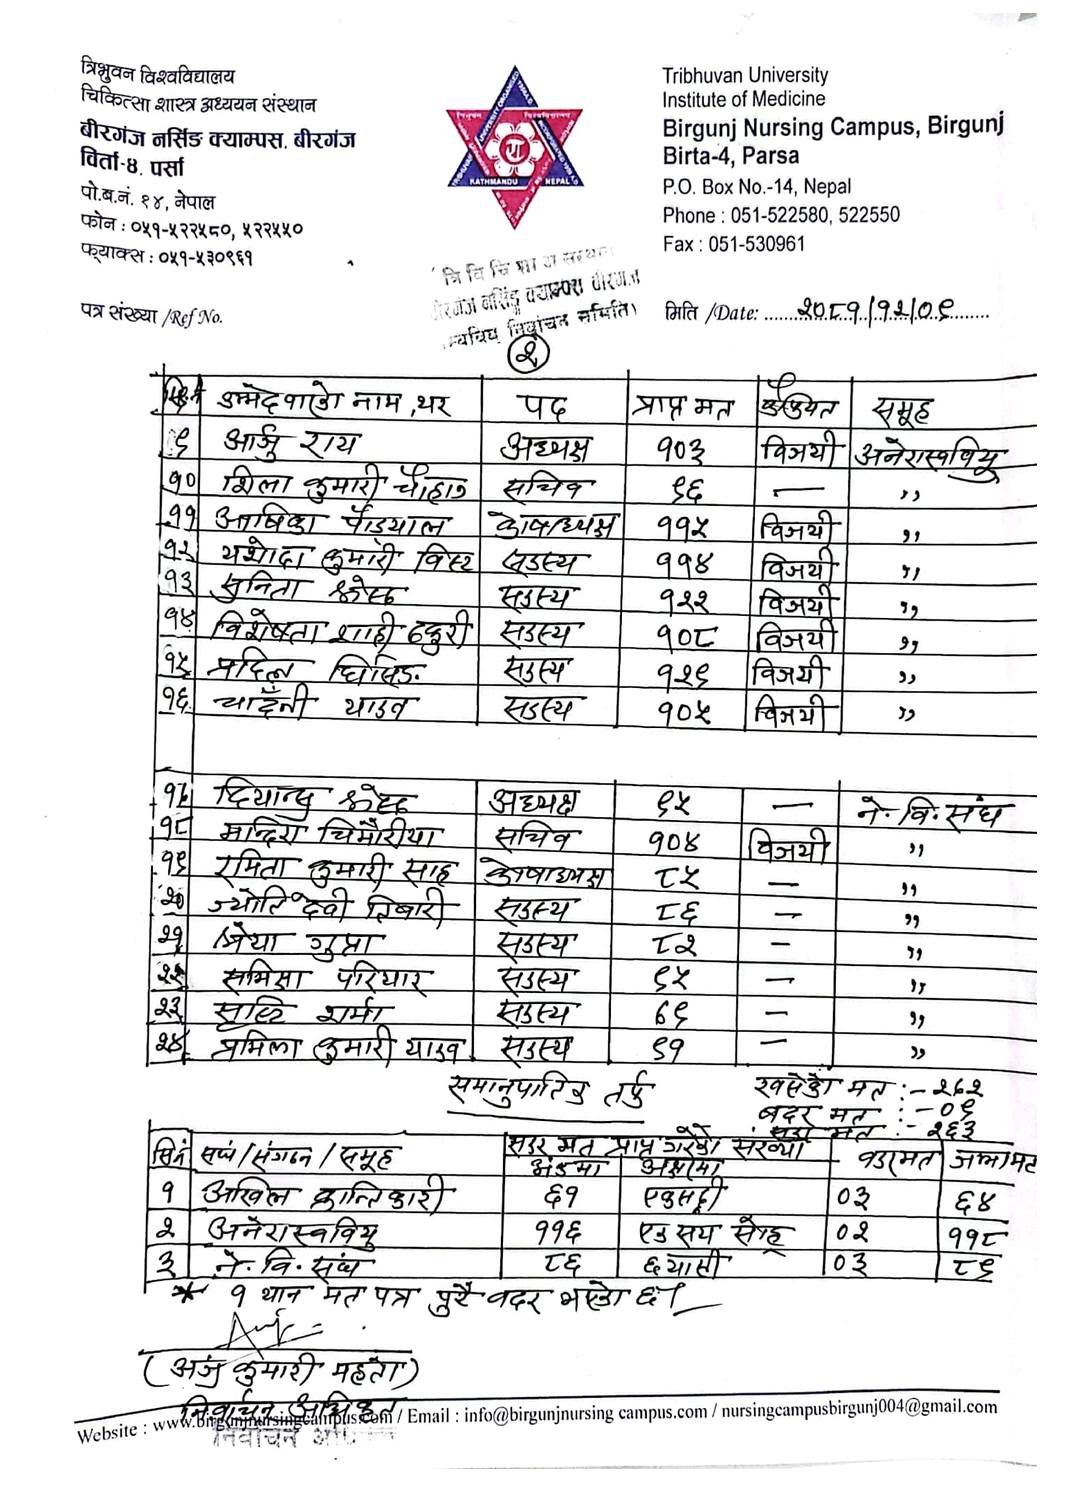 त्रिभुवन विश्वविद्यालय
चिकित्सा शास्त्र अध्ययन संस्थान
बीरगंज नर्सिङ क्याम्पस, बीरगंज
विर्ता-४, पर्सा
पो.ब.नं. १४, नेपाल
फोन : ०५१-५२२५८०, ५२२५५०
फ्याक्स : ०५१-५३०९६१
पत्र संख्या /Ref No.
KATHMANDU NEPAL
Tribhuvan University
Institute of Medicine
Birgunj Nursing Campus, Birgunj
Birta-4, Parsa
P.O. Box No.-14, Nepal
Phone : 051-522580, 522550
Fax : 051-530961
त्रि वि चि शा अ संस्थान
बीरगंज नर्सिङ्ग क्याम्पस बीरगंज
स्ववियु निर्वाचन समिति
मिति /Date: २०८१/१२/०९
२
सि.नं उम्मेदवारको नाम, थर पद प्राप्त मत कैफियत समूह
९ आर्जु राय अध्यक्ष १०३ विजयी अनेरास्ववियू
१० शिला कुमारी चौहान सचिव ९६ — ,,
११ आषिका पौडयाल कोषाध्यक्ष ११५ विजयी ,,
१२ यशोदा कुमारी विस्ट सदस्य ११४ विजयी ,,
१३ सुनिता श्रेष्ठ सदस्य १२२ विजयी ,,
१४ विशेषता शाही ठकुरी सदस्य १०८ विजयी ,,
१५ प्रदिल घिसिङ सदस्य १२६ विजयी ,,
१६ चाँदनी यादव सदस्य १०५ विजयी ,,
१७ दियान्सु श्रेष्ठ अध्यक्ष ९५ — ने. वि. संघ
१८ मन्दिरा चिमौरीया सचिव १०४ विजयी ,,
१९ रमिता कुमारी साह कोषाध्यक्ष ८५ — ,,
२० ज्योति देवी तिवारी सदस्य ८६ — ,,
२१ प्रिया गुप्ता सदस्य ८२ — ,,
२२ समिक्षा परियार सदस्य ९५ — ,,
२३ शर्मा सदस्य ७९ — ,,
२४ प्रमिला कुमारी यादव सदस्य ९१ — ,,
समानुपातिक तर्फ
खसेको मत :- २७२
बदर मत :- ०९
सदर मत :- २६३
सि.नं संघ/संगठन/समूह सदर मत प्राप्त गरेको संख्या वदरमत जम्मामत
अंकमा अक्षरमा
१ अखिल क्रान्तिकारी ६१ एकसट्ठी ०३ ६४
२ अनेरास्ववियु ११६ एक सय सोह्र ०२ ११८
३ ने. वि. संघ ८६ छयासी ०३ ८९
* १ थान मत पत्र पुरै वदर भएको छ।
(अन्जु कुमारी महतो)
निर्वाचन अधिकृत
निर्वाचन अधिकृत
Website : www.birgunjnursingcampus.com / Email : info@birgunjnursing campus.com / nursingcampusbirgunj004@gmail.com